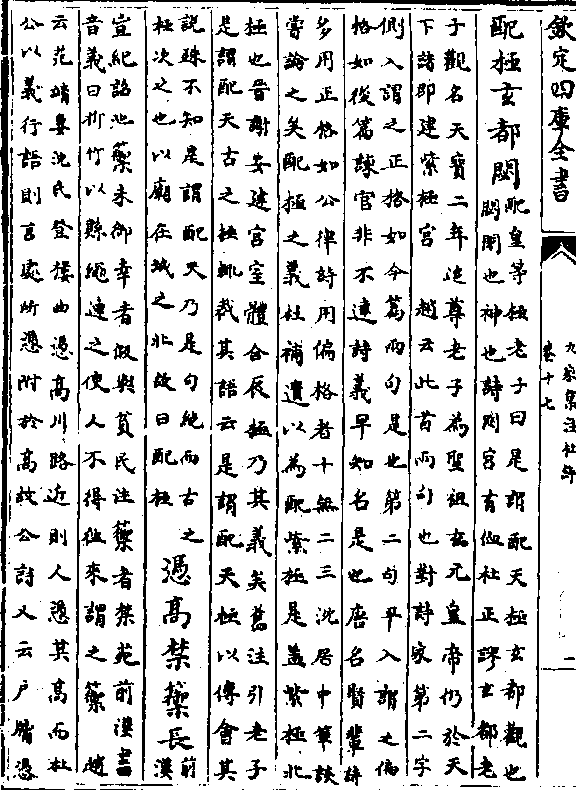 欽定四庫全書
九家集注杜詩
卷十七
配極玄都閟
配皇等極老子曰是謂配天極玄都觀也
閟閉也神也詩閟宮有侐杜正謬玄都老
子觀名天寶二年追尊老子為聖祖玄元皇帝仍於天
下諸郡建紫極宮　趙云此首兩句也對詩家第二字
側入謂之正格如今篇兩句是也第二句平入謂之偏
格如後篇諫官非不達詩義早知名是也唐名賢輩詩
多用正格如公律詩用偏格者十無二三沈居中筆談
嘗論之矣配極之義杜補遺以為配紫極是蓋紫極北
極也晉謝安建宮室體合辰極乃其義矣舊注引老子
是謂配天古之極輒裁其語云是謂配天極以傅會其
說殊不知是謂配天乃是句絕而古之
極次之也以廟在城之北故曰配極
憑高禁蘌長
前
漢
宣紀詔池蘌未御幸者假與貧民注蘌者禁苑前漢書
音義曰折竹以縣繩連之使人不得往來謂之蘌　趙
云范靖妻沈氏登樓曲憑高川路近則人憑其高而杜
公以義行語則言處所憑附於高故公詩又云戶牖憑